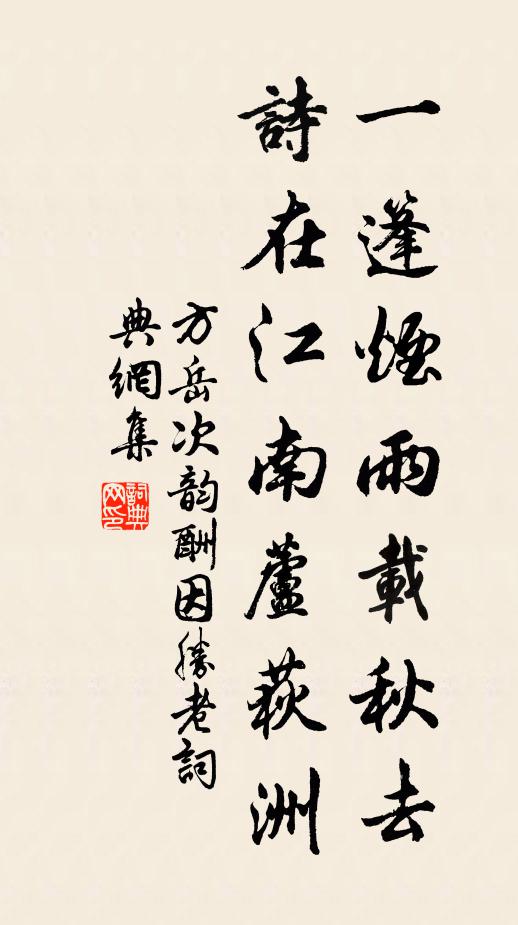 一蓬煙雨載秋去
詩在江南蘆荻洲
方岳次韵酬因勝老詞
典網集
詞典網印